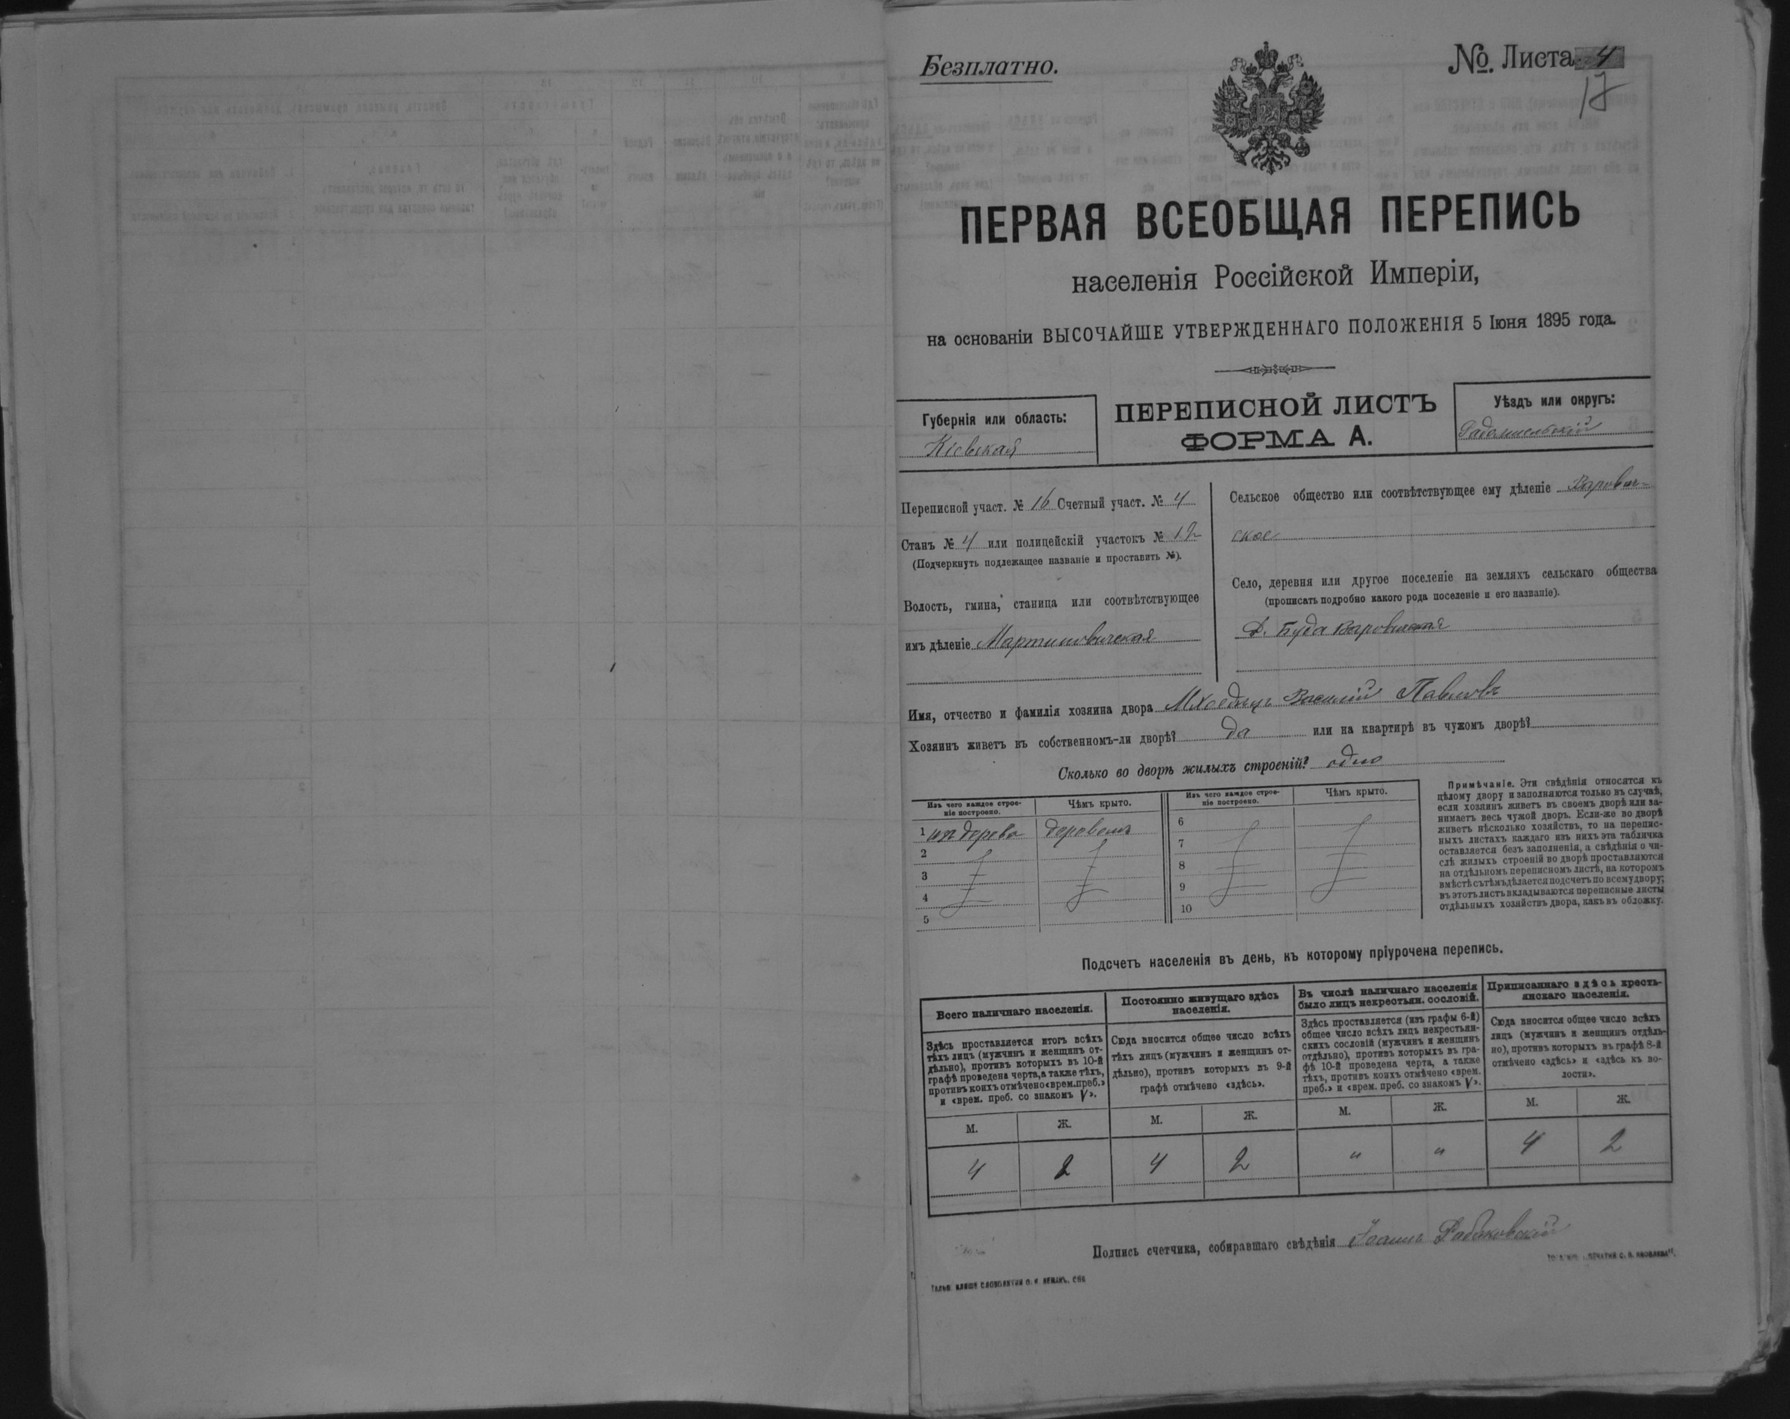 Безплатно.
№ Листа 4
17
ПЕРВАЯ ВСЕОБЩАЯ ПЕРЕПИСЬ
населенія Россійской Имперіи,
на основаніи ВЫСОЧАЙШЕ УТВЕРЖДЕННАГО ПОЛОЖЕНІЯ 5 Іюня 1895 года.
Губернія или область:
Кіевская
ПЕРЕПИСНОЙ ЛИСТЪ
ФОРМА А.
Уѣздъ или округъ:
Радомысльскій
Переписной участ. № 16 Счетный участ. № 4
Станъ № 4 или полицейскій участокъ № 12
(Подчеркнуть подлежащее названіе и проставить №).
Волость, гмина, станица или соотвѣтствующее
имъ дѣленіе Мартиновичская
Сельское общество или соотвѣтствующее ему дѣленіе Варович-
ское
Село, деревня или другое поселеніе на земляхъ сельскаго общества
(прописать подробно какого рода поселеніе и его названіе).
Д. Буда Варовичская
Имя, отчество и фамилія хозяина двора Василій Павловъ
Хозяинъ живетъ въ собственномъ-ли дворѣ? да или на квартирѣ въ чужомъ дворѣ?
Сколько во дворѣ жилыхъ строеній? одно
Изъ чего каждое строе-
ніе построено.
Чѣмъ крыто.
1 изъ дерева деревомъ
2
3
4
5
Изъ чего каждое строе-
ніе построено.
Чѣмъ крыто.
6
7
8
9
10
Примѣчаніе. Эти свѣдѣнія относятся къ
цѣлому двору и заполняются только въ случаѣ,
если хозяинъ живетъ въ своемъ дворѣ или за-
нимаетъ весь чужой дворъ. Если-же во дворѣ
живетъ нѣсколько хозяйствъ, то на перепис-
ныхъ листахъ каждаго изъ нихъ эта табличка
оставляется безъ заполненія, а свѣдѣнія о чи-
слѣ жилыхъ строеній во дворѣ проставляются
на отдѣльномъ переписномъ листѣ, на которомъ
вмѣстѣ съ тѣмъ дѣлается подсчетъ по всему двору;
въ этотъ листъ вкладываются переписные листы
отдѣльныхъ хозяйствъ двора, какъ въ обложку.
Подсчетъ населенія въ день, къ которому пріурочена перепись.
Всего наличнаго населенія.
Здѣсь проставляется итогъ всѣхъ
тѣхъ лицъ (мужчинъ и женщинъ от-
дѣльно), противъ которыхъ въ 10-й
графѣ проведена черта, а также тѣхъ,
противъ коихъ отмѣчено «врем. преб.»
и «врем. преб. со знакомъ V».
М. Ж.
4 2
Постоянно живущаго здѣсь
населенія.
Сюда вносится общее число всѣхъ
тѣхъ лицъ (мужчинъ и женщинъ от-
дѣльно), противъ которыхъ въ 9-й
графѣ отмѣчено «здѣсь».
М. Ж.
4 2
Въ числѣ наличнаго населенія
было лицъ некрестьян. сословій.
Здѣсь проставляется (изъ графы 6-й)
общее число всѣхъ лицъ некрестьян-
скихъ сословій (мужчинъ и женщинъ
отдѣльно), противъ которыхъ въ гра-
фѣ 10-й проведена черта, а также
тѣхъ, противъ коихъ отмѣчено «врем.
преб.» и «врем. преб. со знакомъ V».
М. Ж.
" "
Приписаннаго здѣсь кресть-
янскаго населенія.
Сюда вносится общее число всѣхъ
лицъ (мужчинъ и женщинъ отдѣль-
но), противъ которыхъ въ графѣ 8-й
отмѣчено «здѣсь» и «здѣсь къ во-
лости».
М. Ж.
4 2
Подпись счетчика, собиравшаго свѣдѣнія Іоаннъ